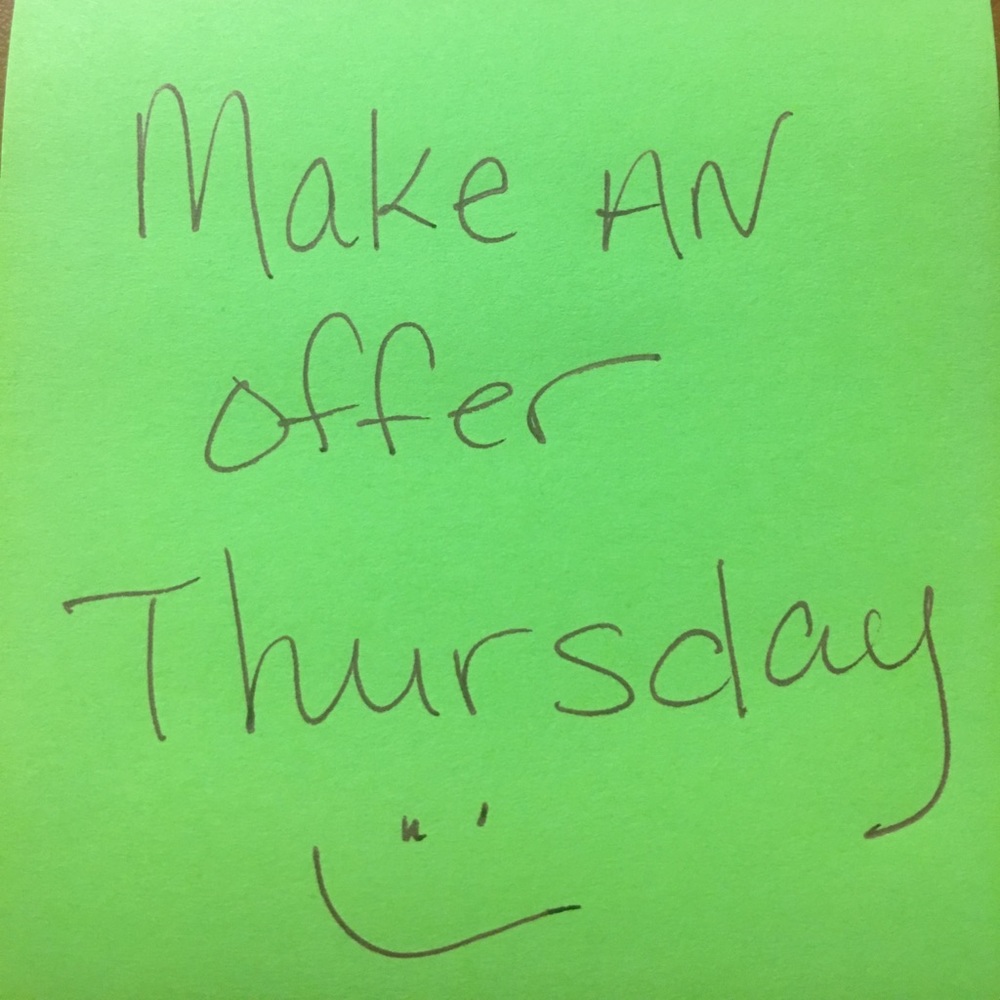 Make AN
offer
Thursday